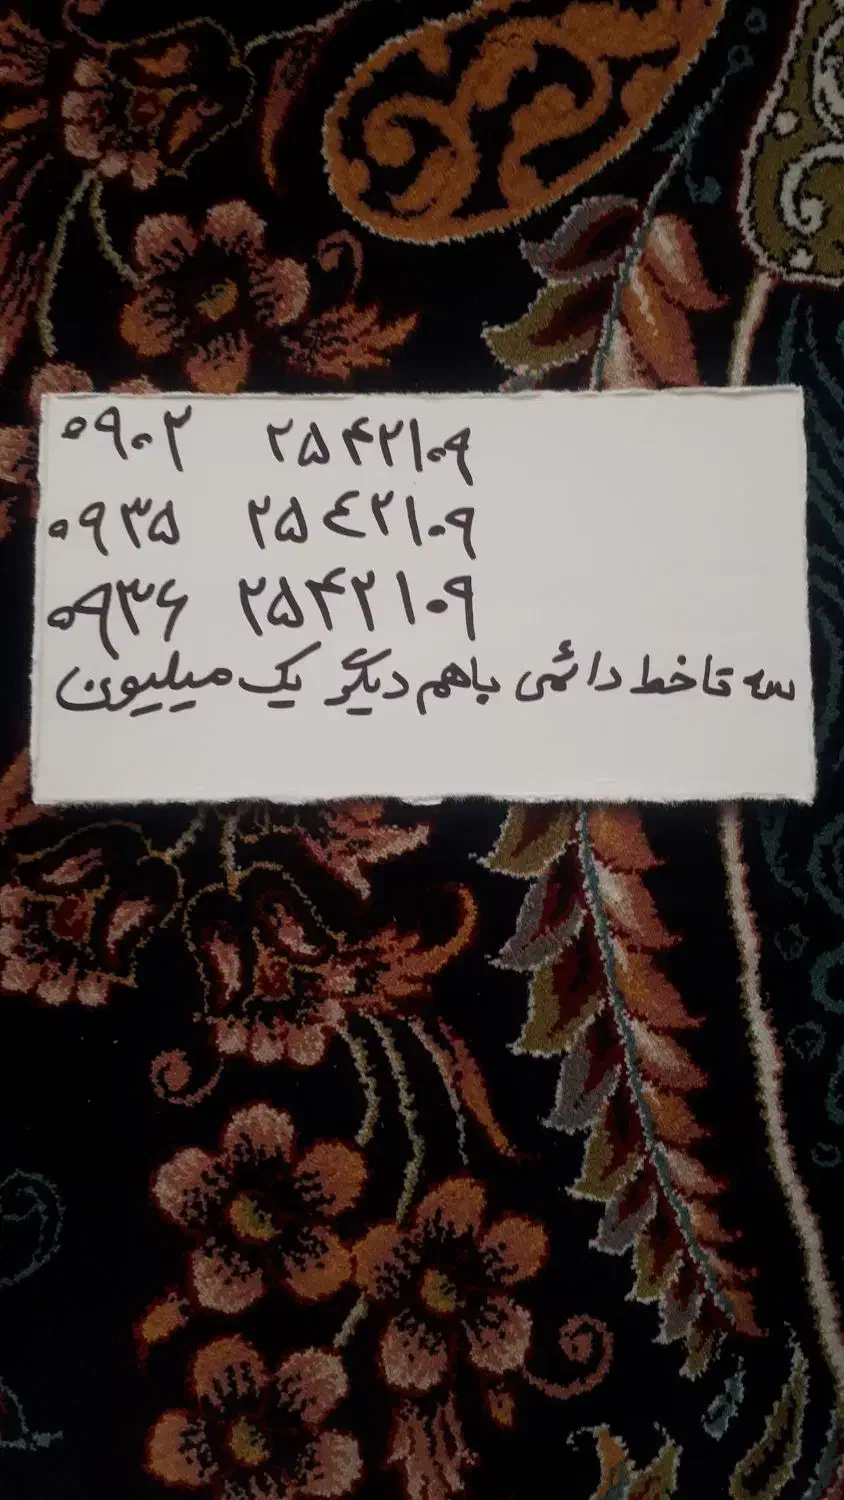 ۰۹۰۲ ۲۵۴۲۱۰۹
۰۹۳۵ ۲۵٤۲۱۰۹
۰۹۳۶ ۲۵۴۲۱۰۹
سه تا خط دائمی باهم دیگر یک میلیون